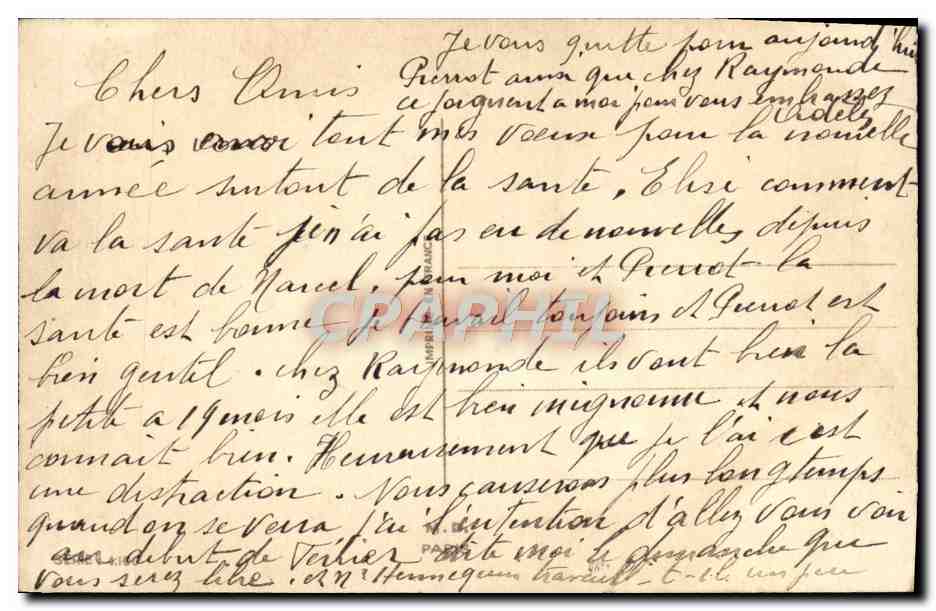 Je vous quitte pour aujourd'hui
Pierrot ainsi que chez Raymonde
ce joignent a moi pour vous embrasser
Adèle
Chers Amis
Je vous envoi tout mes voeux pour la nouvelle
année surtout de la santé. Elise comment
va la santé je n'ai pas eu de nouvelles depuis
la mort de Marcel, pour moi et Pierrot la
santé est bonne, je travail toujours et Pierrot est
bien gentil. chez Raymonde ils vont bien la
petite a 19 mois elle est bien mignonne et nous
connait bien. Heureusement que je l'ai c'est
une distraction. Nous causerons plus longtemps
quand on se verra j'ai l'intention d'allez vous voir
au début de Février dite moi le dimanche que
vous serez libre. et Mr Hennequin travail-t-il un peu
IMPRIMÉ EN FRANCE
PARIS
CPAPHIL